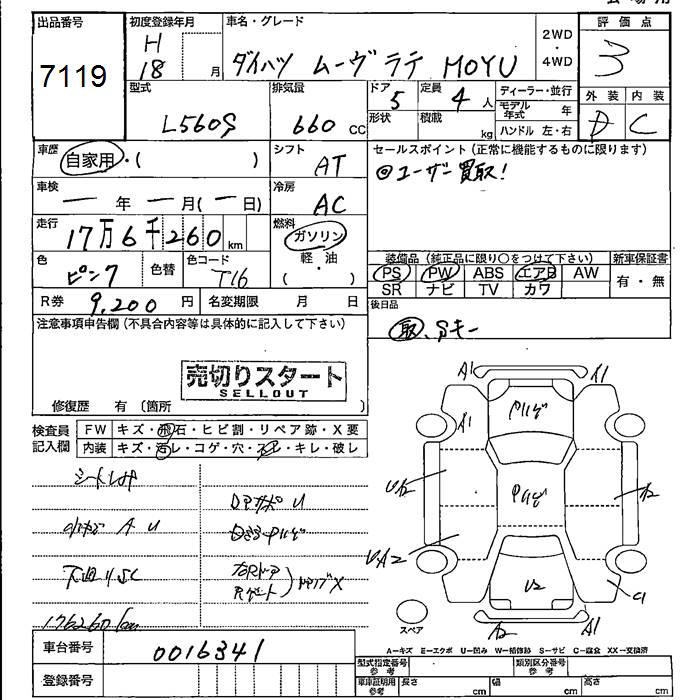 出品番号 初度登録年月 車名・グレード 評価点
7119 H 18 月 ダイハツ ムーヴラテ MOYU 2WD・4WD 3
型式 排気量 ドア 5 定員 4 人 ディーラー・並行 外装 内装
L560S 660 CC 形状 積載 kg モデル年式 年 D C
ハンドル 左・右
車歴 自家用・( ) シフト AT セールスポイント(正常に機能するものに限ります)
◎ユーザー買取!
車検 ー年ー月(ー日) 冷房 AC
走行 17万6千260km 燃料 ガソリン・軽油 ( )
装備品(純正品に限り○をつけて下さい) 新車保証書
色 ピンク 色替 色コード T16 PS PW ABS エアB AW 有・無
SR ナビ TV カワ
R券 9,200 円 名変期限 月 日 後日品
取、Sキー
注意事項申告欄(不具合内容等は具体的に記入して下さい)
売切りスタート
SELLOUT
修復歴 有 (箇所 )
検査員記入欄 FW キズ・飛石・ヒビ割・リペア跡・X要
内装 キズ・汚レ・コゲ・穴・スレ・キレ・破レ
A1 A1
A1
A2
A2 A1 C1
U2
下廻りSC
176260km
スペア
A=キズ E=エクボ U=凹み W=補修跡 S=サビ C=腐食 XX=交換済
車台番号 0016341
登録番号
型式指定番号 参考 類別区分番号 参考
車庫証明用 参考 長さ cm 幅 cm 高さ cm